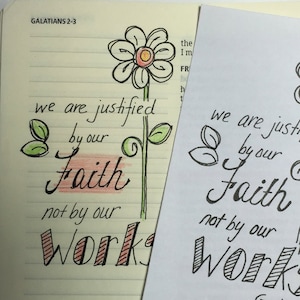 GALATIANS 2-3
the
I m
FR
we are justified
by our
Faith
not by our
Works
we are just
by our
Faith
not by our
Works